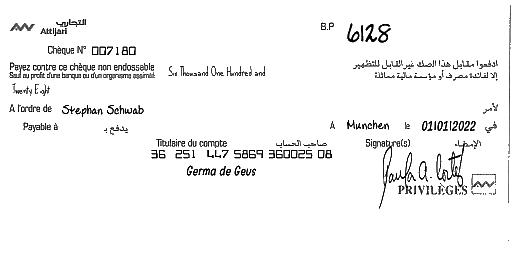 التجاري
Attijari
B.P 6128
Chèque N° 007180
Payez contre ce chèque non endossable
Sauf au profit d'une banque ou d'un organisme assimilé
Six Thousand One Hundred and
ادفعوا مقابل هذا الصك غير القابل للتظهير
إلا لفائدة مصرف أو مؤسسة مالية مماثلة
Twenty Eight
A l'ordre de Stephan Schwab
لأمر
Payable à يدفع بـ
A Munchen le 01/01/2022 في
Titulaire du compte صاحب الحساب
Signature(s) الإمضاء
36 251 447 5869 360025 08
Germa de Geus
PRIVILÈGES